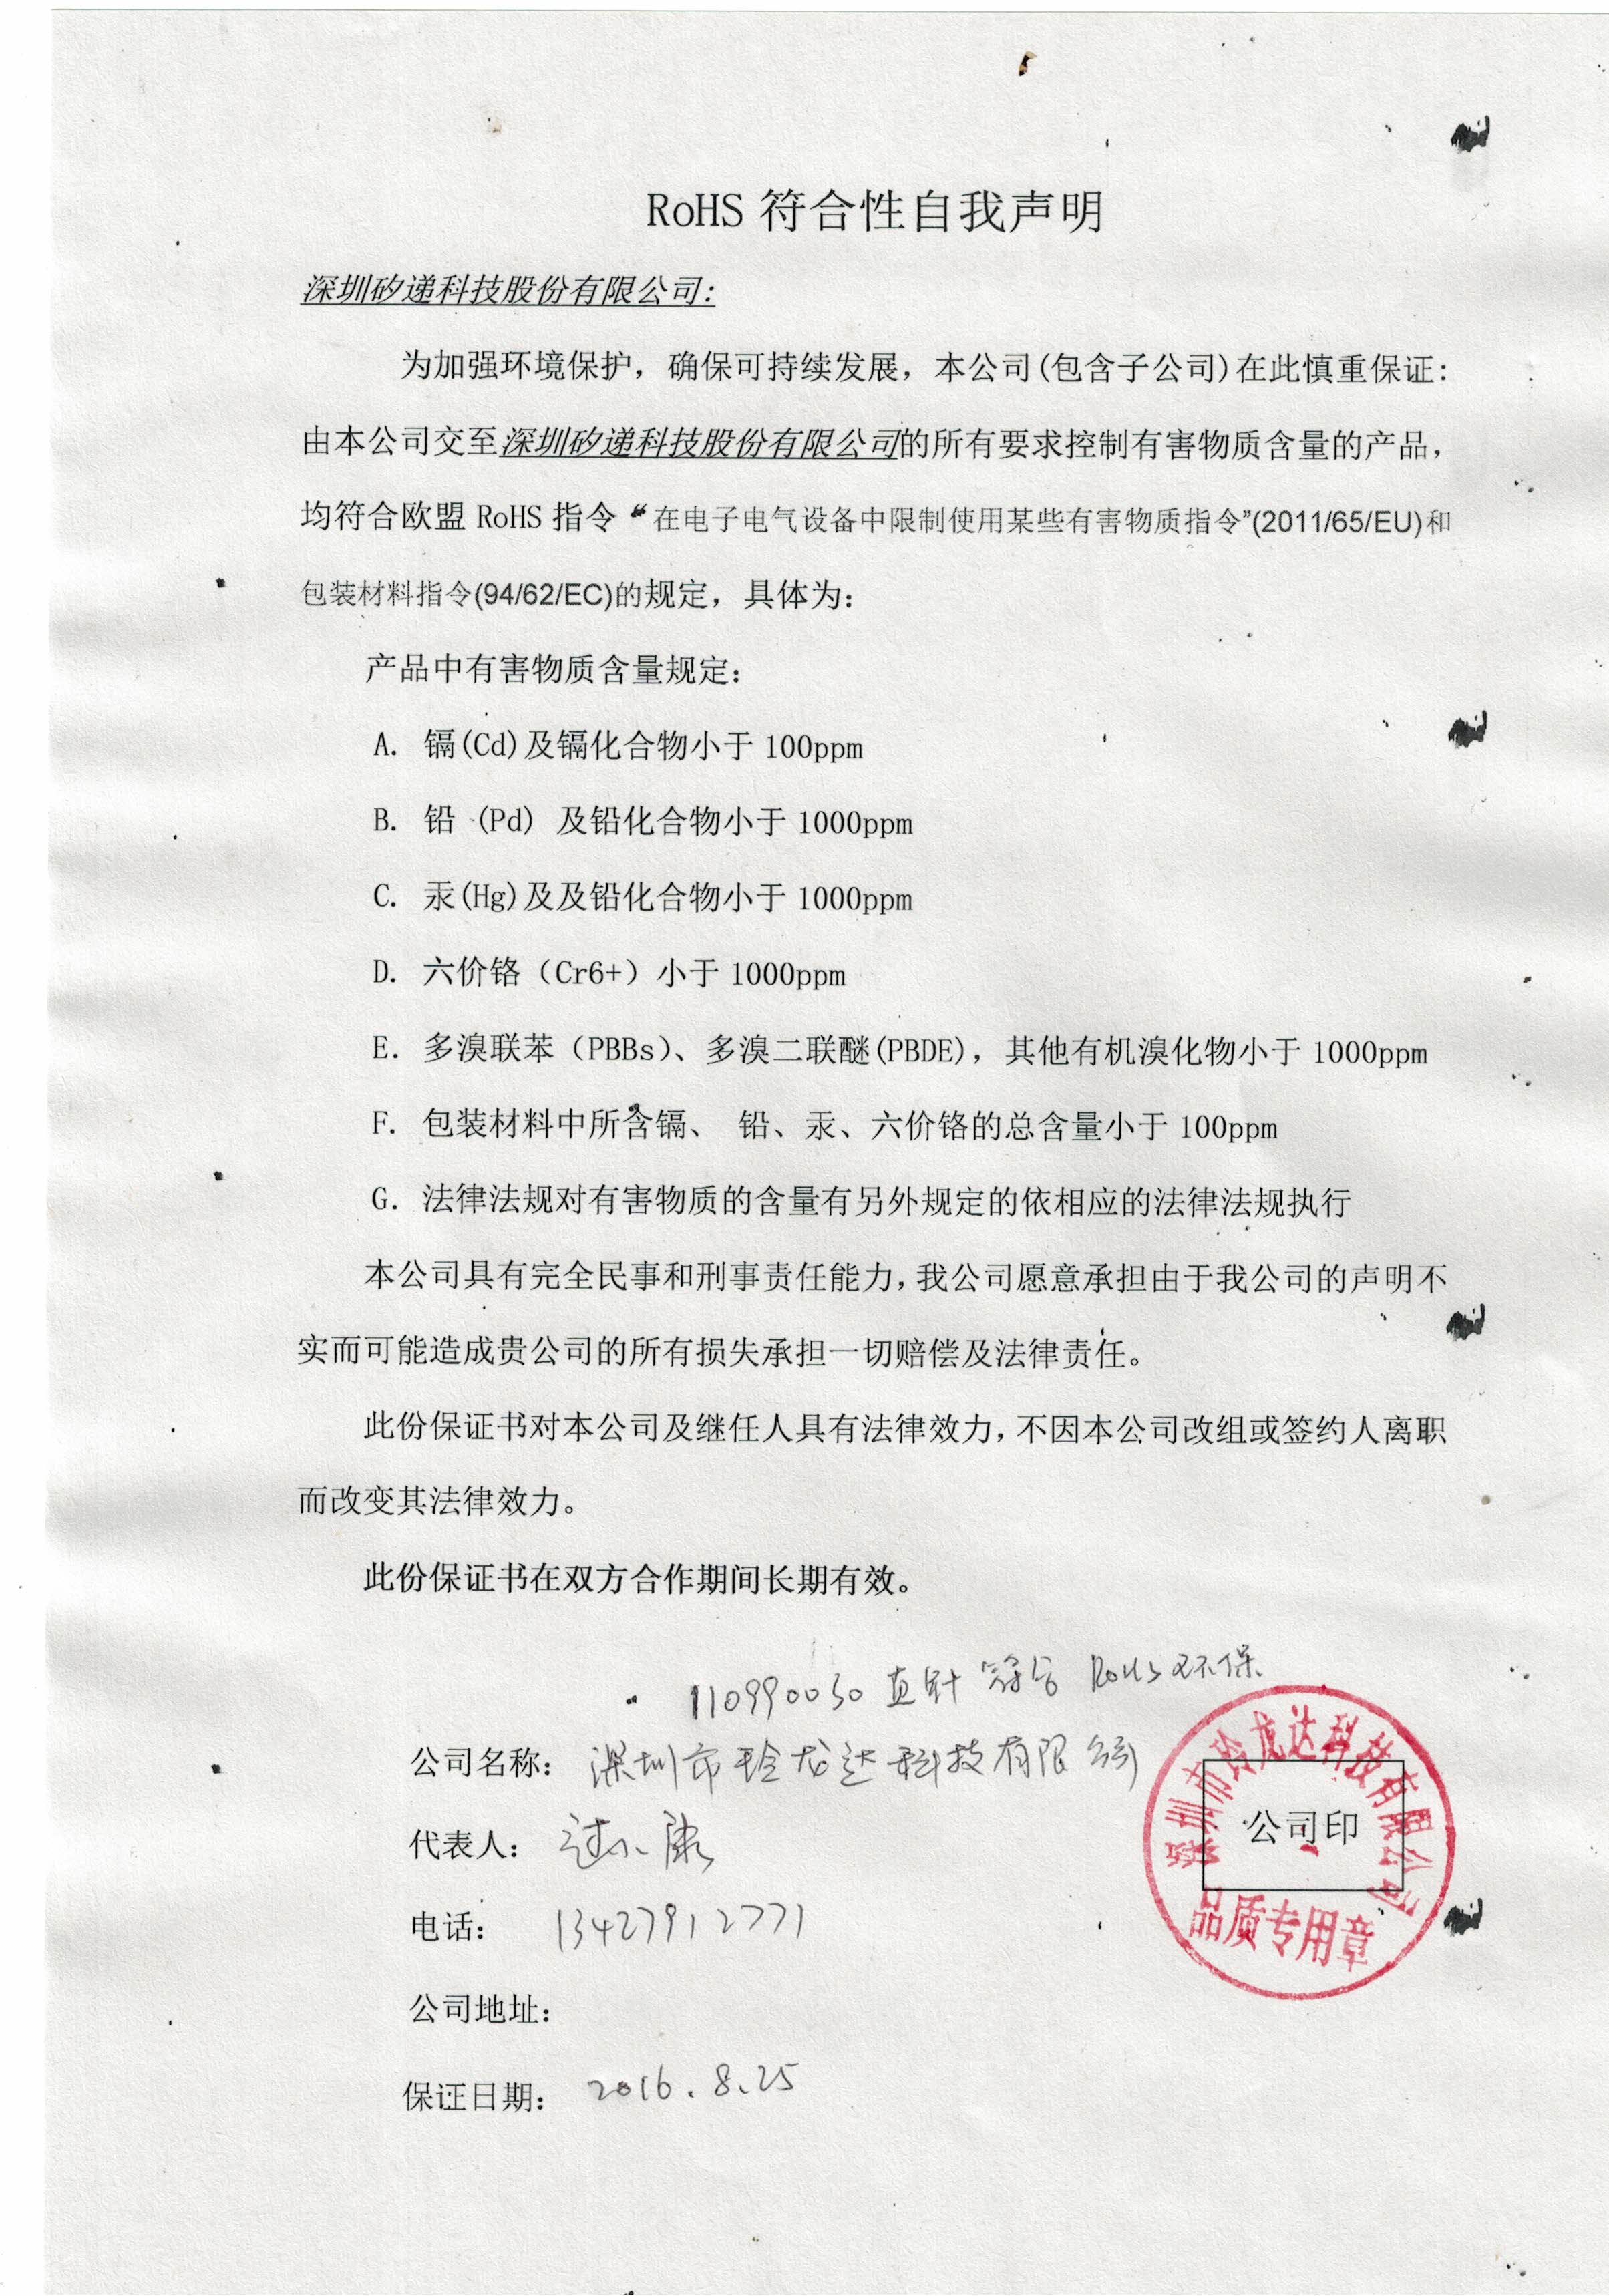 RoHS 符合性自我声明
深圳矽递科技股份有限公司:
为加强环境保护，确保可持续发展，本公司(包含子公司)在此慎重保证:
由本公司交至深圳矽递科技股份有限公司的所有要求控制有害物质含量的产品，
均符合欧盟 RoHS 指令“在电子电气设备中限制使用某些有害物质指令”(2011/65/EU)和
包装材料指令(94/62/EC)的规定，具体为:
产品中有害物质含量规定:
A. 镉(Cd)及镉化合物小于 100ppm
B. 铅 (Pd) 及铅化合物小于 1000ppm
C. 汞(Hg)及及铅化合物小于 1000ppm
D. 六价铬（Cr6+）小于 1000ppm
E. 多溴联苯（PBBs）、多溴二联醚(PBDE)，其他有机溴化物小于 1000ppm
F. 包装材料中所含镉、 铅、汞、六价铬的总含量小于 100ppm
G. 法律法规对有害物质的含量有另外规定的依相应的法律法规执行
本公司具有完全民事和刑事责任能力,我公司愿意承担由于我公司的声明不
实而可能造成贵公司的所有损失承担一切赔偿及法律责任。
此份保证书对本公司及继任人具有法律效力,不因本公司改组或签约人离职
而改变其法律效力。
此份保证书在双方合作期间长期有效。
110990030 直针 符合 RoHS 环保
公司名称: 深圳市玲龙达科技有限公司
代表人: 小康
电话: 13427912771
公司地址:
保证日期: 2016.8.25
深圳市玲龙达科技有限公司
公司印
品质专用章